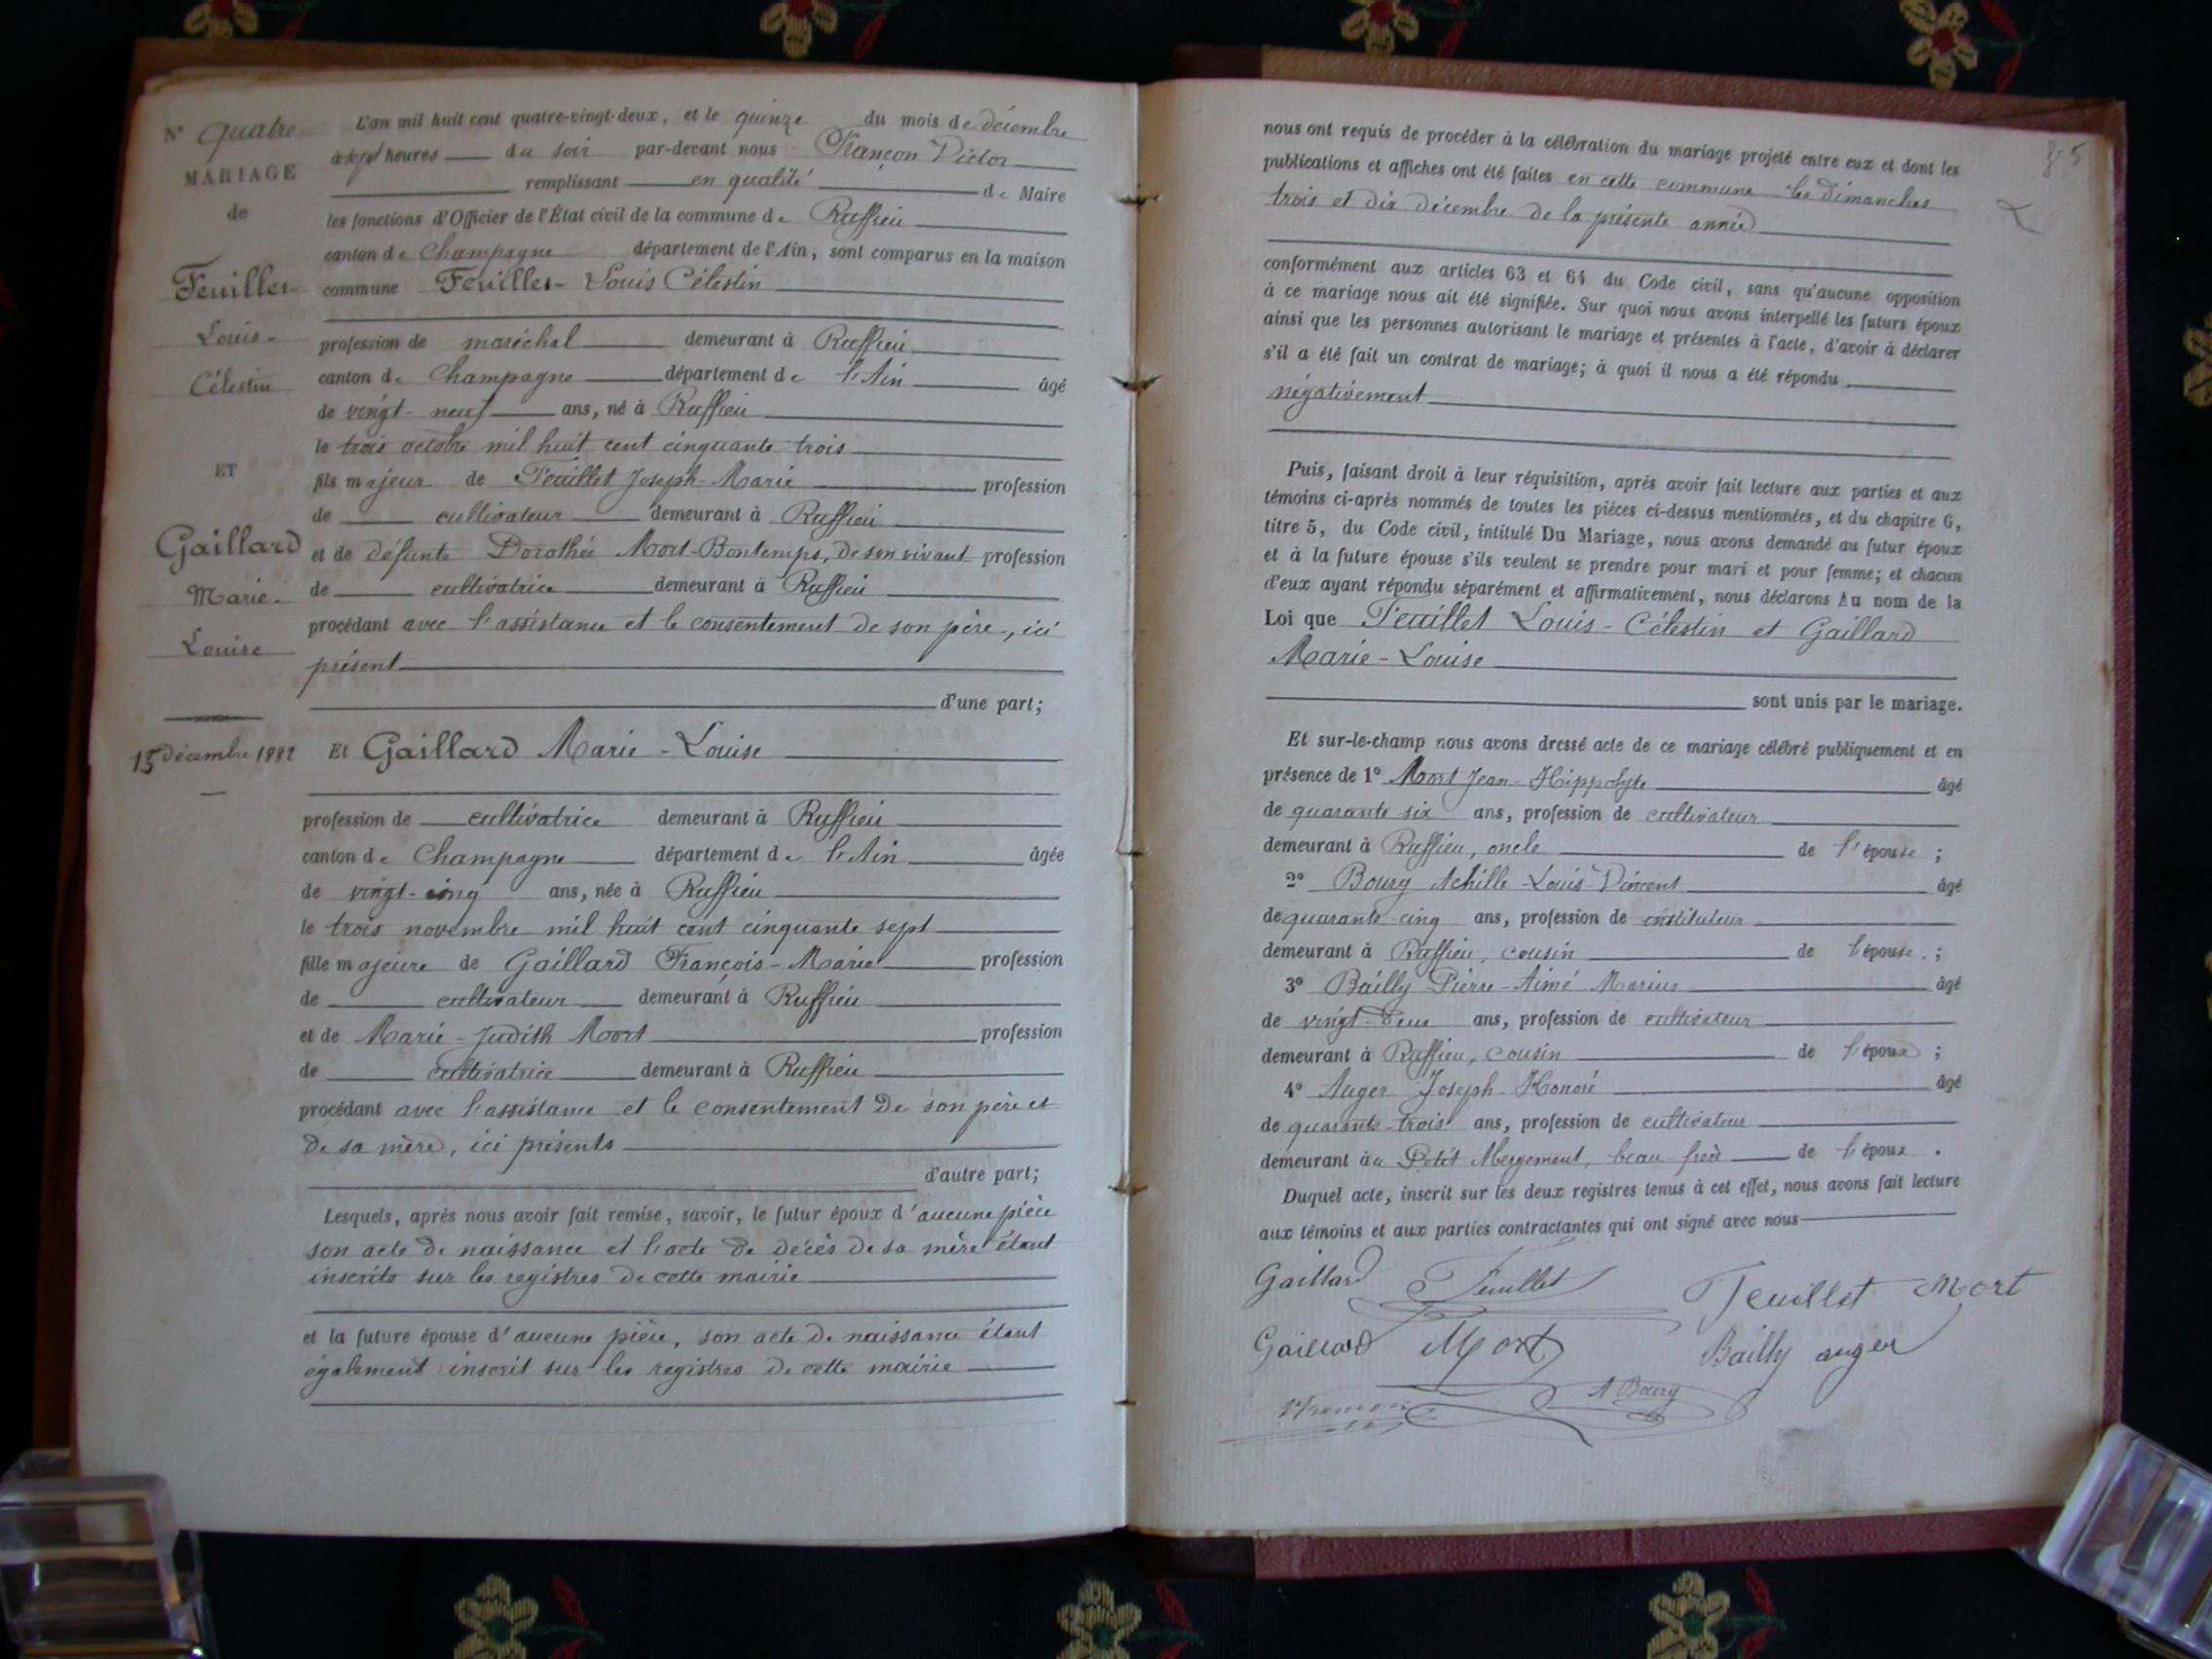 N° quatre
MARIAGE
de
Feuillet
Louis-
Célestin
ET
Gaillard
Marie-
Louise
15 Décembre 1882
L'an mil huit cent quatre-vingt-deux, et le quinze du mois de décembre
à sept heures du soir par-devant nous Françon Victor
remplissant en qualité de Maire
les fonctions d'Officier de l'État civil de la commune de Ruffieu
canton de Champagne département de l'Ain, sont comparus en la maison
commune Feuillet Louis Célestin
profession de maréchal demeurant à Ruffieu
canton de Champagne département de l'Ain âgé
de vingt-neuf ans, né à Ruffieu
le trois octobre mil huit cent cinquante trois
fils majeur de Feuillet Joseph-Marie profession
de cultivateur demeurant à Ruffieu
et de défunte Dorothée Mort-Bontemps, de son vivant profession
de cultivatrice demeurant à Ruffieu
procédant avec l'assistance et le consentement de son père, ici
présent
d'une part;
Et Gaillard Marie-Louise
profession de cultivatrice demeurant à Ruffieu
canton de Champagne département de l'Ain âgée
de vingt-cinq ans, née à Ruffieu
le trois novembre mil huit cent cinquante sept
fille majeure de Gaillard François-Marie profession
de cultivateur demeurant à Ruffieu
et de Marie-Judith Mort profession
de cultivatrice demeurant à Ruffieu
procédant avec l'assistance et le consentement de son père et
de sa mère, ici présents
d'autre part;
Lesquels, après nous avoir fait remise, savoir, le futur époux d'aucune pièce
son acte de naissance et l'acte de décès de sa mère étant
inscrits sur les registres de cette mairie
et la future épouse d'aucune pièce, son acte de naissance étant
également inscrit sur les registres de cette mairie
nous ont requis de procéder à la célébration du mariage projeté entre eux et dont les
publications et affiches ont été faites en cette commune les dimanches
trois et dix décembre de la présente année
conformément aux articles 63 et 64 du Code civil, sans qu'aucune opposition
à ce mariage nous ait été signifiée. Sur quoi nous avons interpellé les futurs époux
ainsi que les personnes autorisant le mariage et présentes à l'acte, d'avoir à déclarer
s'il a été fait un contrat de mariage; à quoi il nous a été répondu
négativement
Puis, faisant droit à leur réquisition, après avoir fait lecture aux parties et aux
témoins ci-après nommés de toutes les pièces ci-dessus mentionnées, et du chapitre 6,
titre 5, du Code civil, intitulé Du Mariage, nous avons demandé au futur époux
et à la future épouse s'ils veulent se prendre pour mari et pour femme; et chacun
d'eux ayant répondu séparément et affirmativement, nous déclarons Au nom de la
Loi que Feuillet Louis-Célestin et Gaillard
Marie-Louise
sont unis par le mariage.
Et sur-le-champ nous avons dressé acte de ce mariage célébré publiquement et en
présence de 1° Mort Jean-Hippolyte âgé
de quarante six ans, profession de cultivateur
demeurant à Ruffieu, oncle de l'épouse ;
2° Bourg Achille-Louis-Vincent âgé
de quarante cinq ans, profession de instituteur
demeurant à Ruffieu, cousin de l'épouse. ;
3° Bailly Pierre-Aimé Marius âgé
de vingt-deux ans, profession de cultivateur
demeurant à Ruffieu, cousin de l'époux ;
4° Auger Joseph-Honoré âgé
de quarante-trois ans, profession de cultivateur
demeurant au Petit Abergement, beau-frère de l'époux .
Duquel acte, inscrit sur les deux registres tenus à cet effet, nous avons fait lecture
aux témoins et aux parties contractantes qui ont signé avec nous
Gaillard Feuillet Feuillet Mort
Gaillard Mort Bailly auger
A Bourg